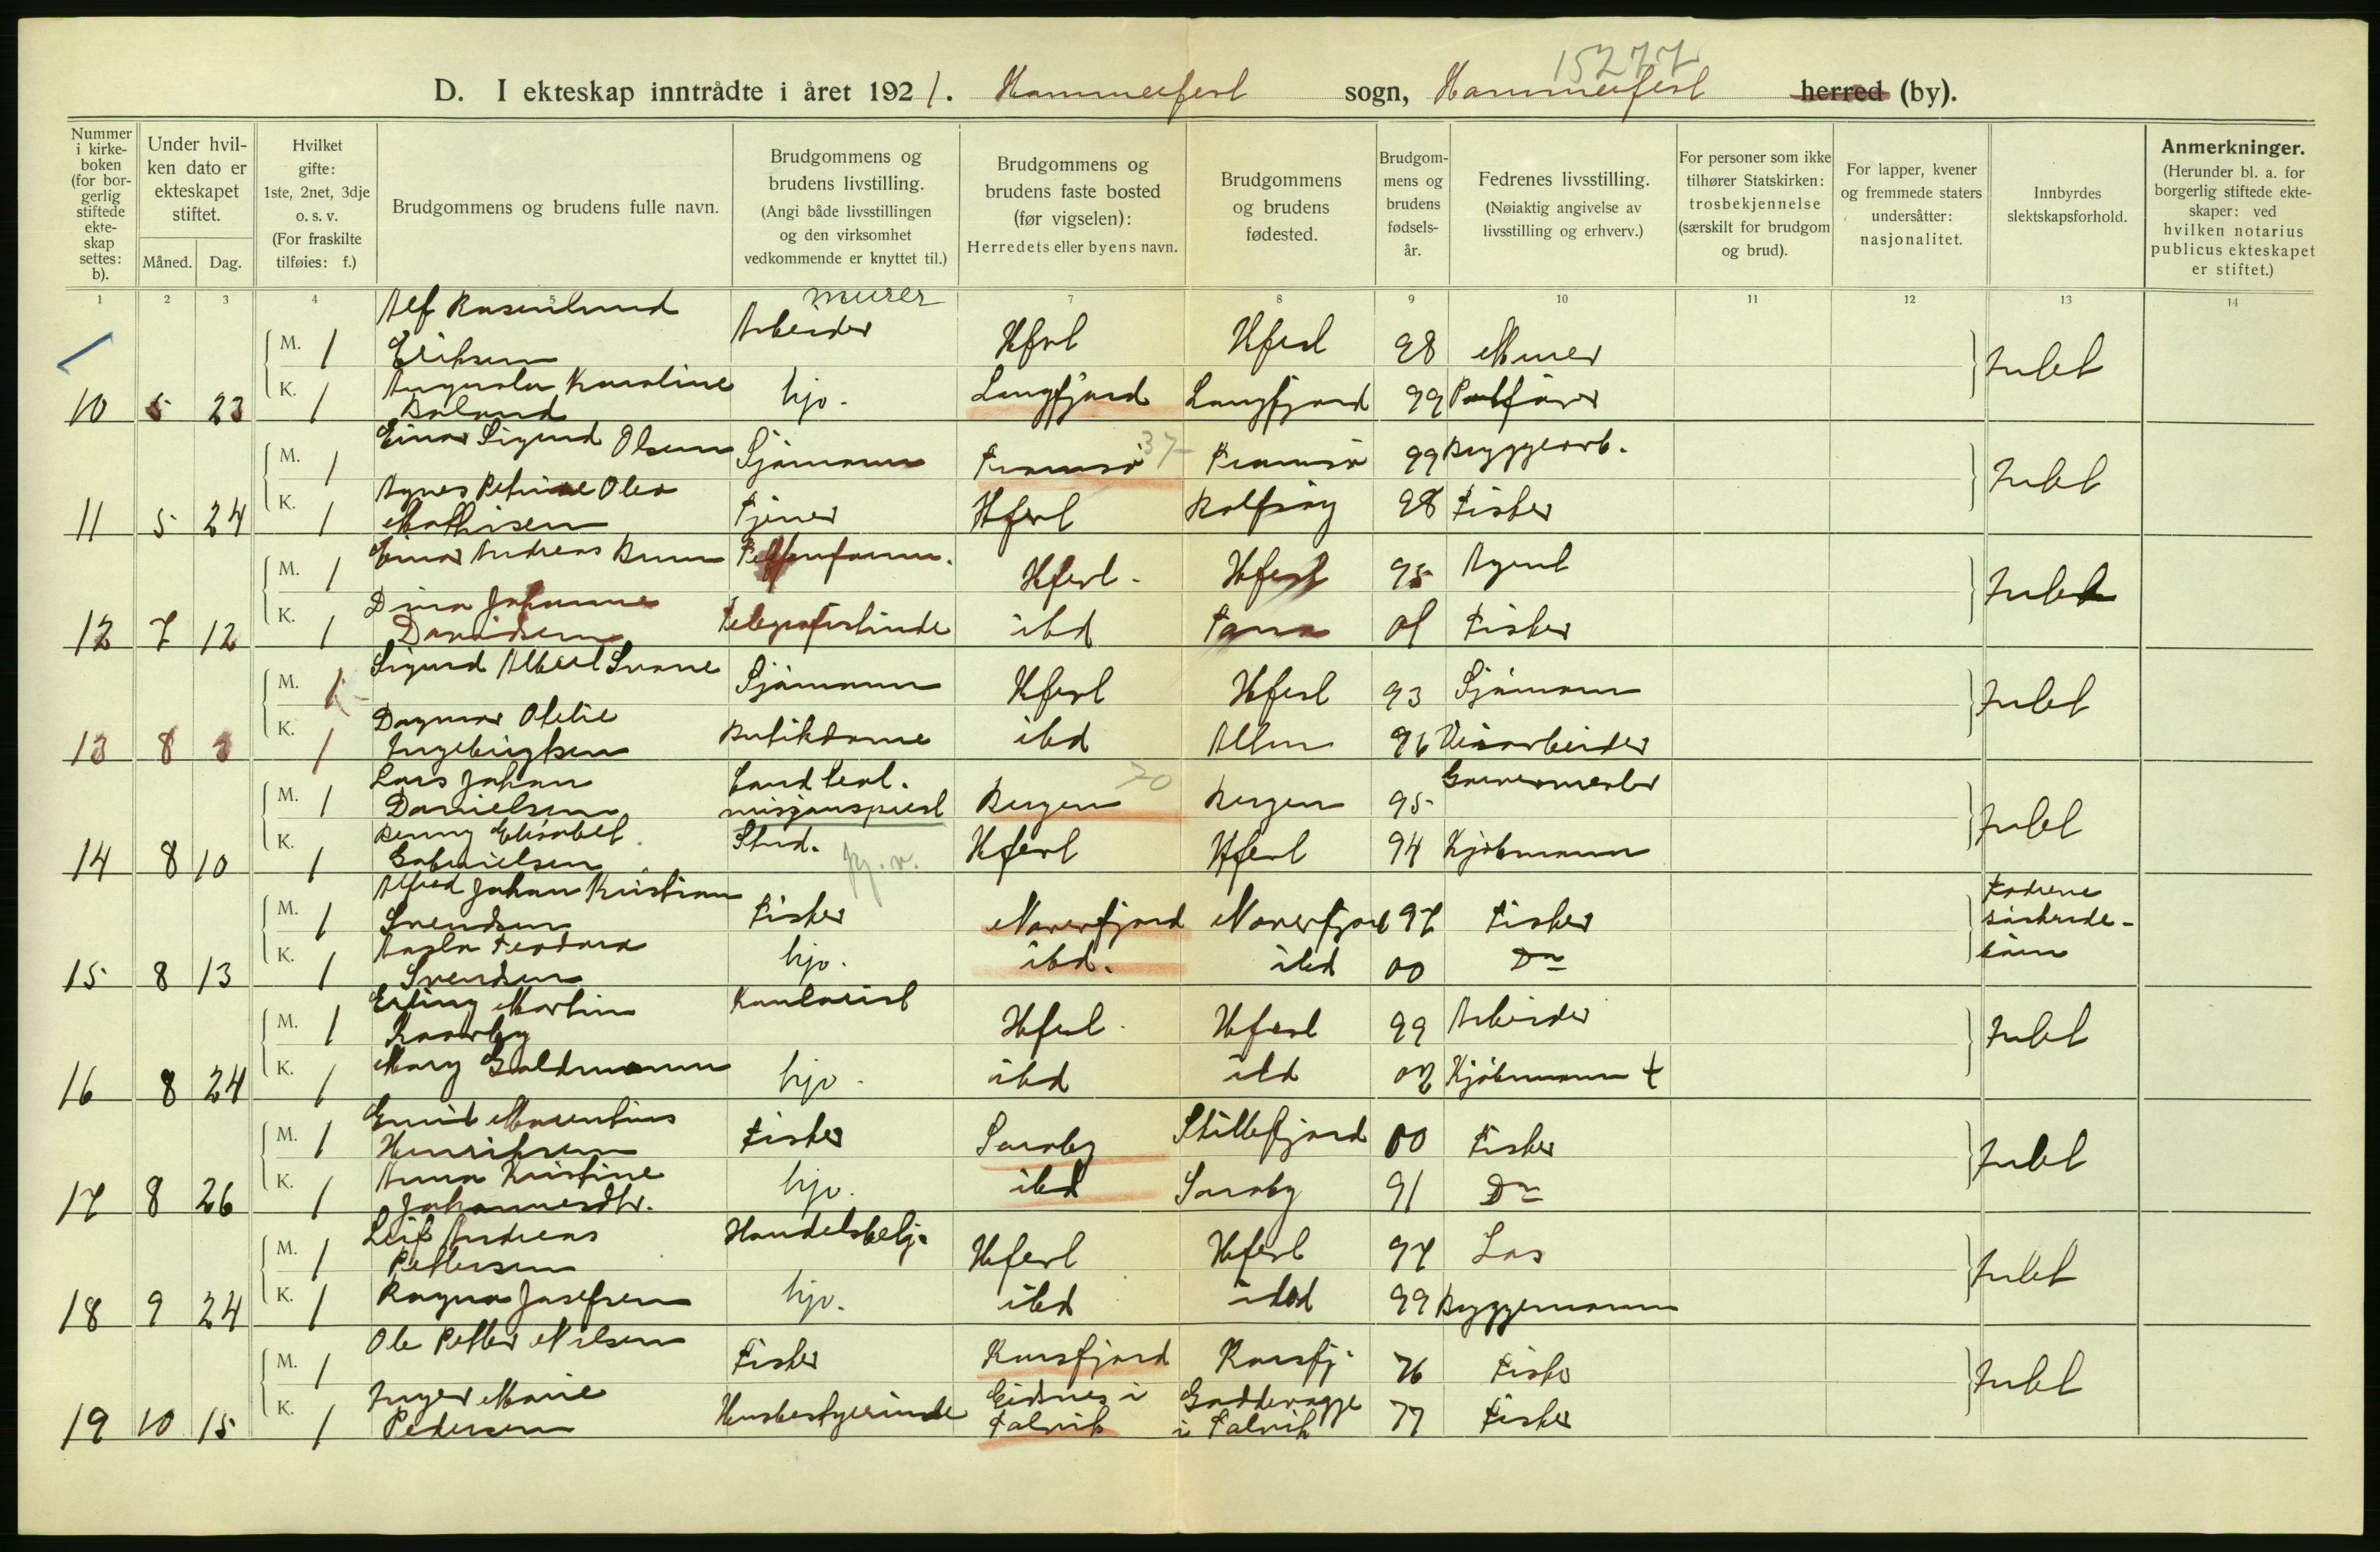 15277
D. I ekteskap inntrådte i året 1921. Hammerfest sogn, Hammerfest herred (by).
Nummer i kirkeboken (for borgerlig stiftede ekteskap settes: b).
Under hvilken dato er ekteskapet stiftet.
Måned. Dag.
Hvilket gifte: 1ste, 2net, 3dje o. s. v. (For fraskilte tilføies: f.)
Brudgommens og brudens fulle navn.
Brudgommens og brudens livstilling. (Angi både livsstillingen og den virksomhet vedkommende er knyttet til.)
Brudgommens og brudens faste bosted (før vigselen): Herredets eller byens navn.
Brudgommens og brudens fødested.
Brudgommens og brudens fødselsår.
Fedrenes livsstilling. (Nøiaktig angivelse av livsstilling og erhverv.)
For personer som ikke tilhører Statskirken: trosbekjennelse (særskilt for brudgom og brud).
For lapper, kvener og fremmede staters undersåtter: nasjonalitet.
Innbyrdes slektskapsforhold.
Anmerkninger. (Herunder bl. a. for borgerlig stiftede ekteskaper: ved hvilken notarius publicus ekteskapet er stiftet.)
1 2 3 4 5 7 8 9 10 11 12 13 14
murer
M. 1 Alf Rosenlund Eriksen Arbeider Hfest Hfest 98 Murer Intet
10 5 23 K. 1 Augusta Karoline Boland hjv. Langfjord Langfjord 99
37
M. 1 Einar Sigurd Olsen Sjømann Tromsø Tromsø 99 Bryggearb. Intet
11 5 24 K. 1 Agnes Petrine Olea Mathisen Tjener Hfest Rolfsøy 98 Fisker
M. 1 Einar Andreas Hfest. Hfest 95 Agent Intet
12 7 12 K. 1 Dina Johanne Davidsen Telegrafistinde ibd Tana 01 Fisker
M. 1 Sigurd Albert Svane Sjømann Hfest Hfest 93 Sjømann Intet
13 8 3 K. 1 Dagmar Otelie Ingebrigtsen Butikdame ibd Alten 96 Veiarbeider
70
M. 1 Lars Johan Danielsen Cand. teol. misjonsprest Bergen Bergen 95 Garvermester Intet
14 8 10 K. 1 Gabrielsen Stud. Hfest Hfest 94 Kjøbmann
M. 1 Alfred Johan Kristian Svendsen Fisker Naverfjord Naverfjord 97 Fisker Fedrene søskende-
15 8 13 K. 1 Aasta Feodora Svendsen hjv. ibd. ibd 00 Do
M. 1 Erling Martin Kontorist Hfest. Hfest 99 Arbeider Intet
16 8 24 K. 1 Mary Goldmann hjv. ibd ibd 02 Kjøbmann †
M. 1 Emil Henriksen Fisker Saraby Skillefjord 00 Fisker Intet
17 8 26 K. 1 Anna Kristine Johannesdtr. hjv. ibd Saraby 91 Do
M. 1 Leif Andreas Pettersen Handelsbetj. Hfest Hfest 97 Los Intet
18 9 24 K. 1 Ragna Josefsen hjv. ibd ibd 99 Bryggemann
M. 1 Ole Petter Nilsen Fisker Korsfjord Korsfj. 76 Fisker Intet
19 10 15 K. 1 Inger Marie Pedersen Husbestyrerinde Eidsnes i Talvik Gaddevagge i Talvik 77 Fisker